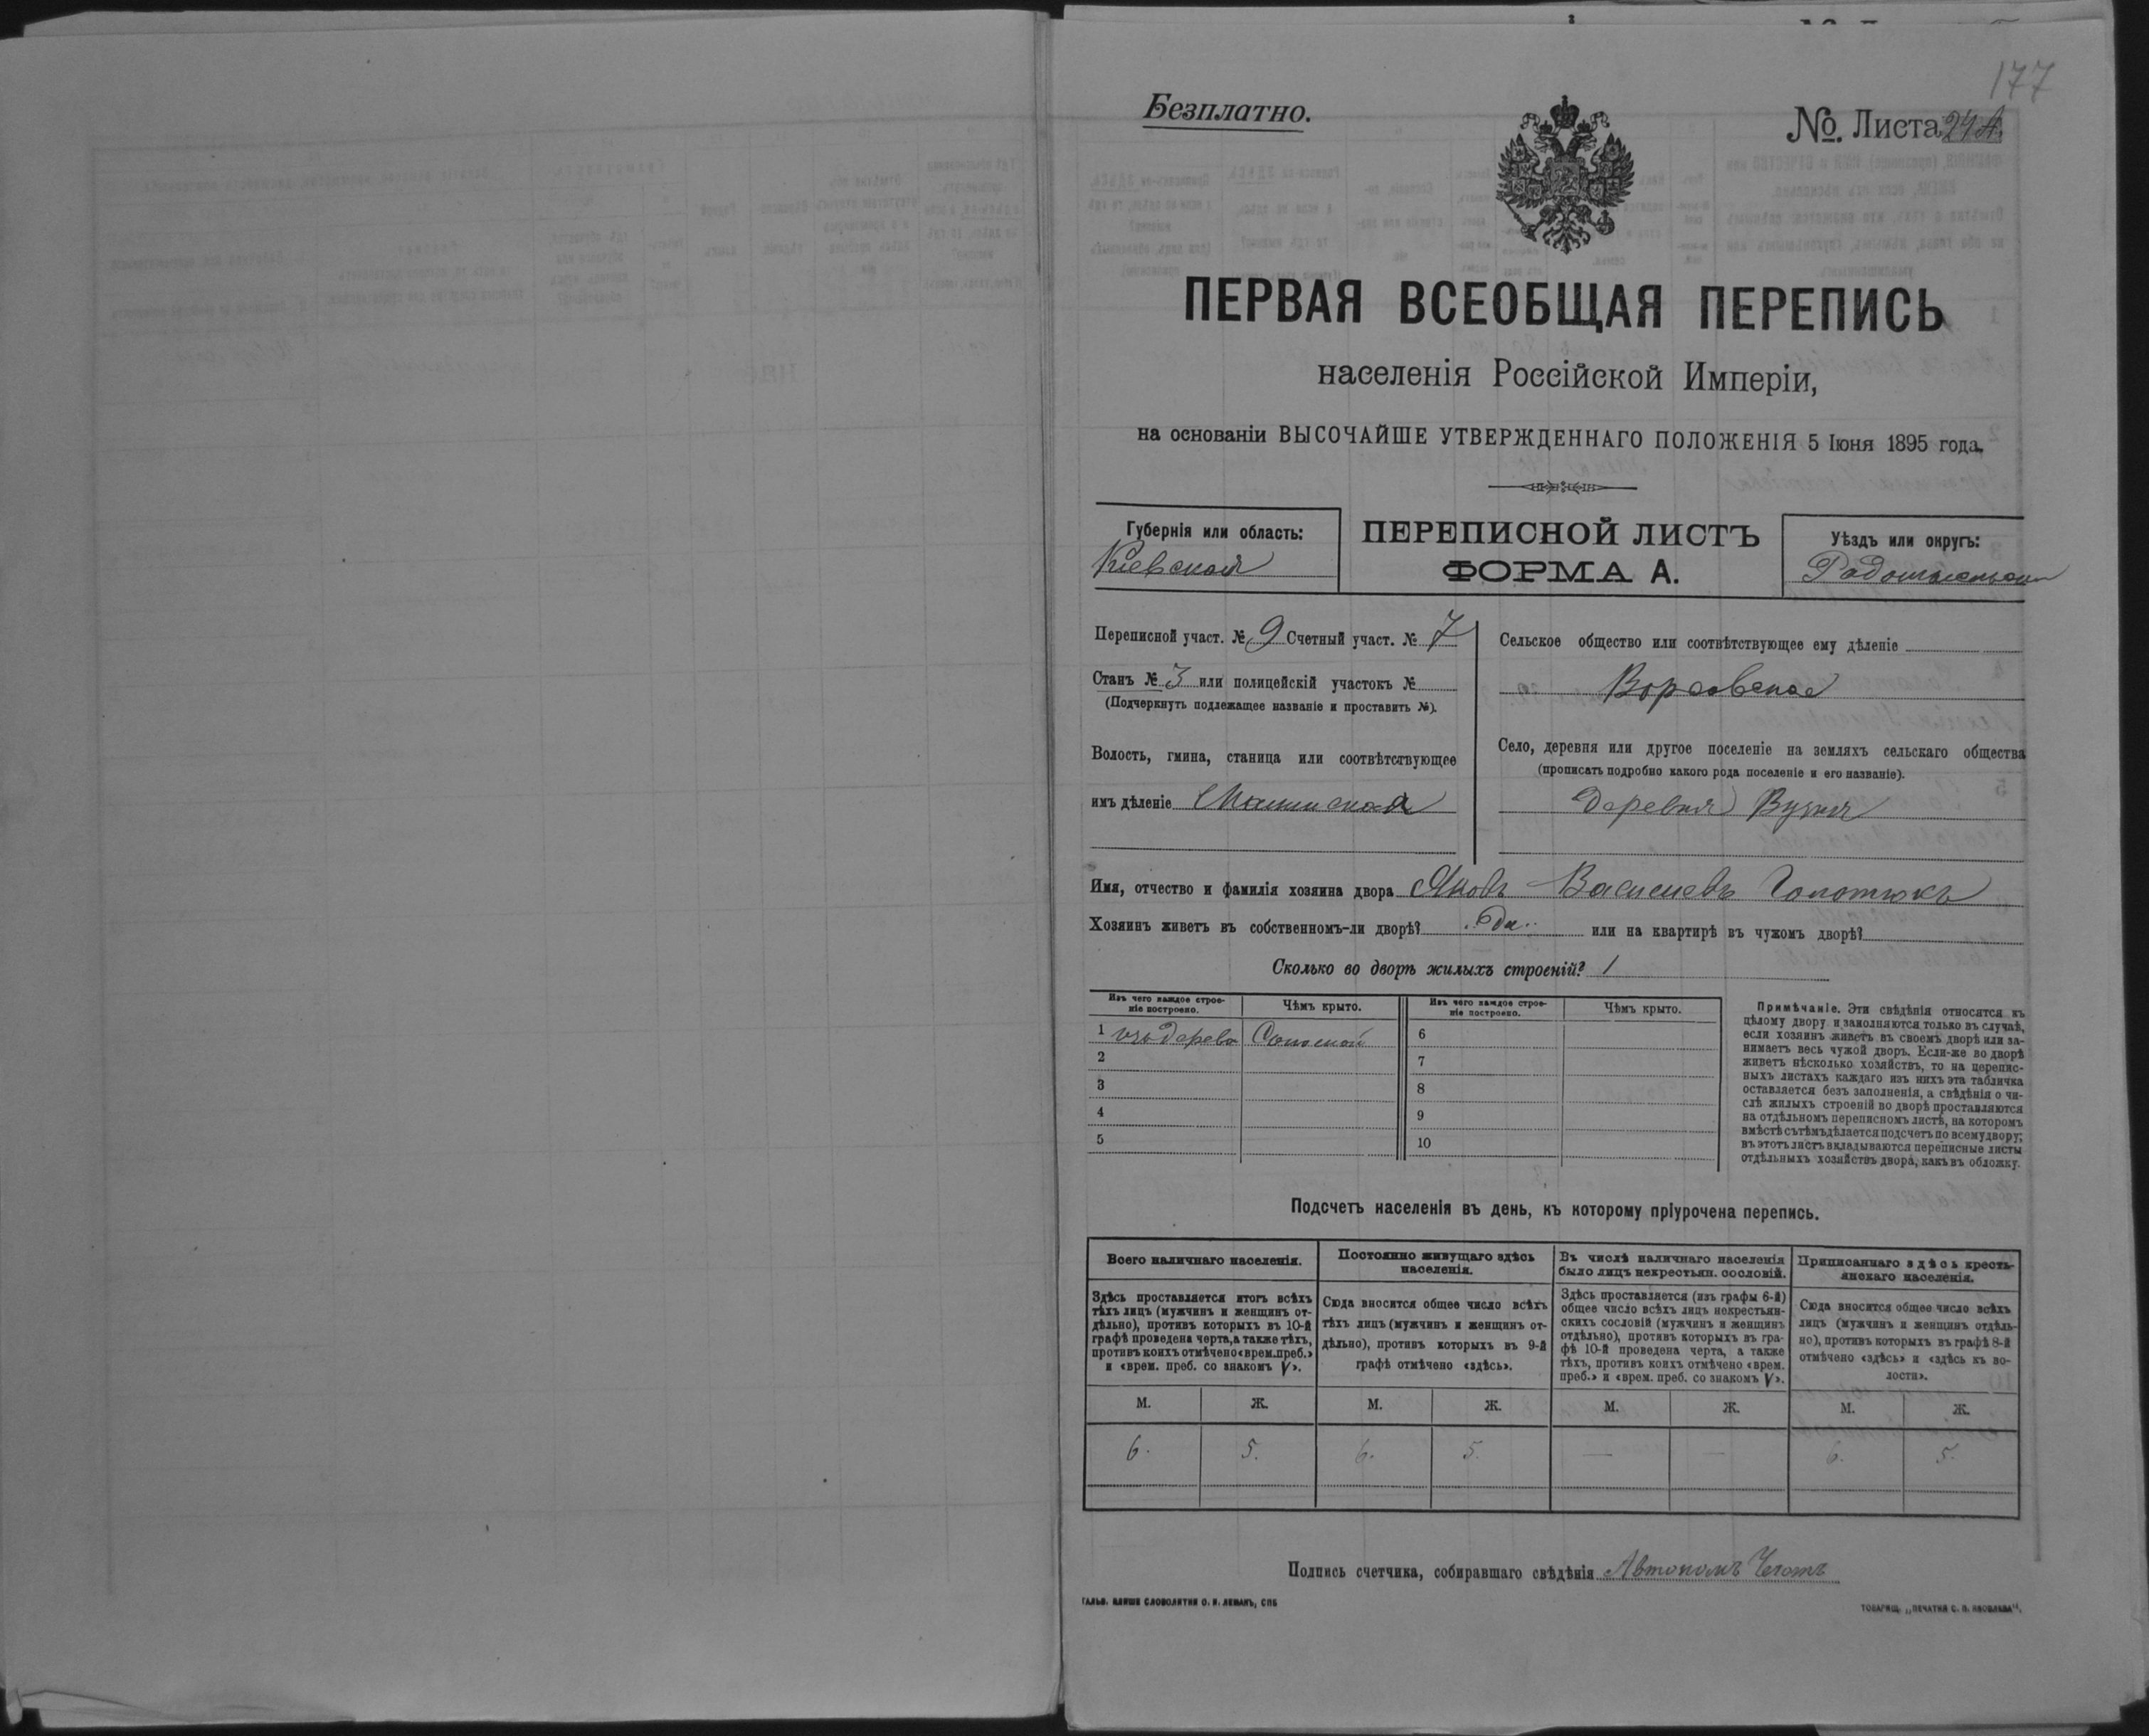 177
Безплатно.
№. Листа 24
ПЕРВАЯ ВСЕОБЩАЯ ПЕРЕПИСЬ
населенія Россійской Имперіи,
на основаніи ВЫСОЧАЙШЕ УТВЕРЖДЕННАГО ПОЛОЖЕНІЯ 5 Іюня 1895 года.
Губернія или область:
Кіевская
ПЕРЕПИСНОЙ ЛИСТЪ
ФОРМА А.
Уѣздъ или округъ:
Переписной участ. № 9 Счетный участ. № 7
Станъ № 3 или полицейскій участокъ №
(Подчеркнуть подлежащее названіе и проставить №).
Волость, гмина, станица или соотвѣтствующее
имъ дѣленіе
Сельское общество или соотвѣтствующее ему дѣленіе
Ворсовское
Село, деревня или другое поселеніе на земляхъ сельскаго общества
(прописать подробно какого рода поселеніе и его названіе).
деревня
Имя, отчество и фамилія хозяина двора Яковъ Васильевъ
Хозяинъ живетъ въ собственномъ-ли дворѣ? да или на квартирѣ въ чужомъ дворѣ?
Сколько во дворѣ жилыхъ строеній? 1
Изъ чего каждое строе-
ніе построено.
Чѣмъ крыто.
Изъ чего каждое строе-
ніе построено.
Чѣмъ крыто.
1 изъ дерева Соломой 6
2 7
3 8
4 9
5 10
Примѣчаніе. Эти свѣдѣнія относятся къ
цѣлому двору и заполняются только въ случаѣ,
если хозяинъ живетъ въ своемъ дворѣ или за-
нимаетъ весь чужой дворъ. Если-же во дворѣ
живетъ нѣсколько хозяйствъ, то на перепис-
ныхъ листахъ каждаго изъ нихъ эта табличка
оставляется безъ заполненія, а свѣдѣнія о чи-
слѣ жилыхъ строеній во дворѣ проставляются
на отдѣльномъ переписномъ листѣ, на которомъ
вмѣстѣ съ тѣмъ дѣлается подсчетъ по всему двору;
въ этотъ листъ вкладываются переписные листы
отдѣльныхъ хозяйствъ двора, какъ въ обложку.
Подсчетъ населенія въ день, къ которому пріурочена перепись.
Всего наличнаго населенія.
Постоянно живущаго здѣсь
населенія.
Въ числѣ наличнаго населенія
было лицъ некрестьян. сословій.
Приписаннаго здѣсь кресть-
янскаго населенія.
Здѣсь проставляется итогъ всѣхъ
тѣхъ лицъ (мужчинъ и женщинъ от-
дѣльно), противъ которыхъ въ 10-й
графѣ проведена черта, а также тѣхъ,
противъ коихъ отмѣчено «врем. преб.»
и «врем. преб. со знакомъ V».
Сюда вносится общее число всѣхъ
тѣхъ лицъ (мужчинъ и женщинъ от-
дѣльно), противъ которыхъ въ 9-й
графѣ отмѣчено «здѣсь».
Здѣсь проставляется (изъ графы 6-й)
общее число всѣхъ лицъ некрестьян-
скихъ сословій (мужчинъ и женщинъ
отдѣльно), противъ которыхъ въ гра-
фѣ 10-й проведена черта, а также
тѣхъ, противъ коихъ отмѣчено «врем.
преб.» и «врем. преб. со знакомъ V».
Сюда вносится общее число всѣхъ
лицъ (мужчинъ и женщинъ отдѣль-
но), противъ которыхъ въ графѣ 8-й
отмѣчено «здѣсь» и «здѣсь къ во-
лости».
М. Ж. М. Ж. М. Ж. М. Ж.
6. 5. 6. 5. — — 6. 5.
Подпись счетчика, собиравшаго свѣдѣнія Автономъ
ГАЛЬВ. КЛИШЕ СЛОВОЛИТНИ О. И. ЛЕМАНЪ, СПБ
ТОВАРИЩ. „ПЕЧАТНЯ С. П. ЯКОВЛЕВА“.